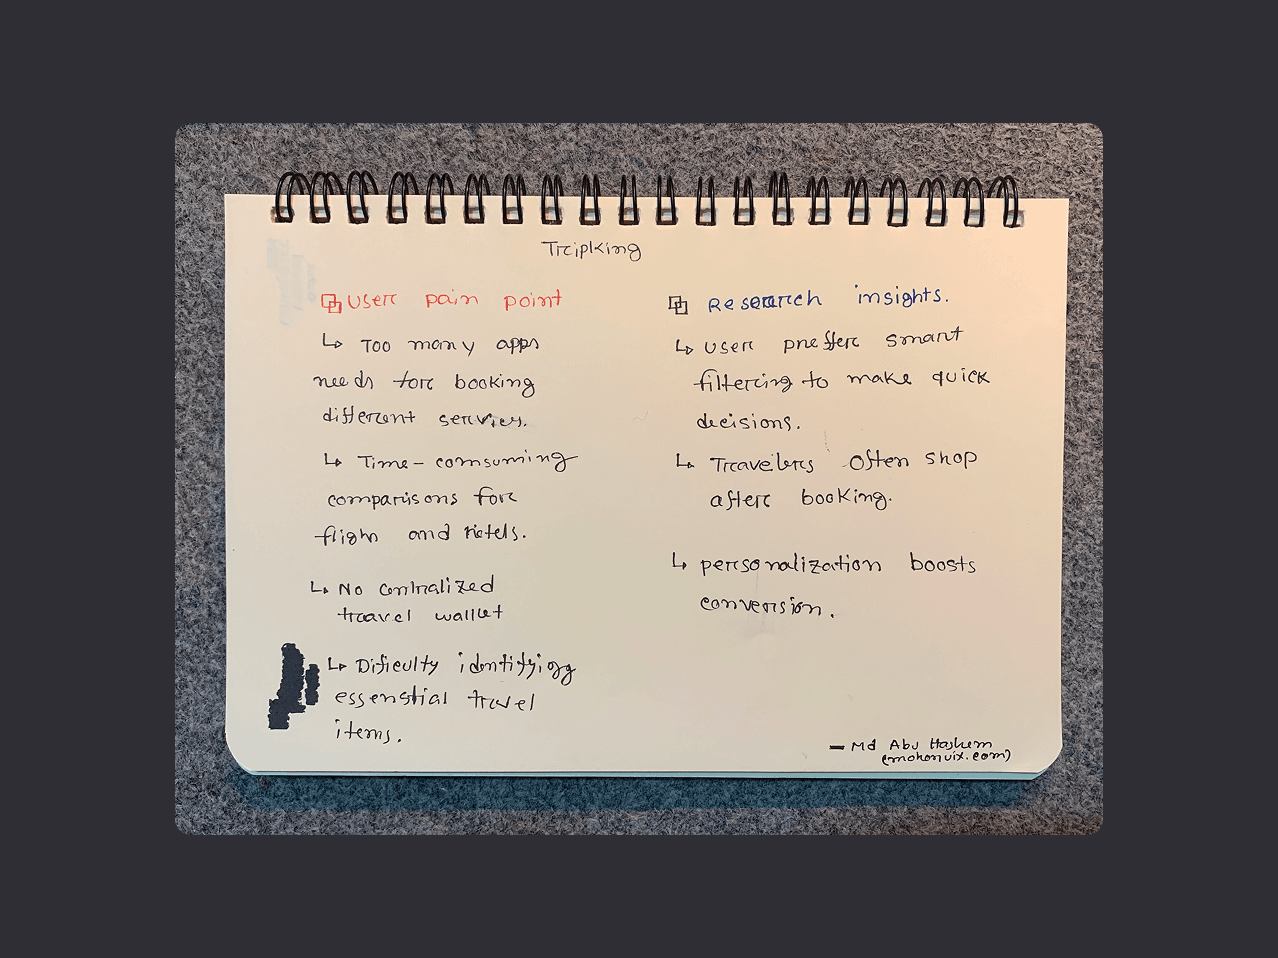 Tripking
User pain point
↳ Too many apps
needs for booking
different services.
↳ Time-comsuming
comparisons for
fligh and hotels.
↳ No centralized
travel wallet
↳ Dificulty identifying
essenstial travel
items.
Research insights.
↳ user preffer smart
filtering to make quick
decisions.
↳ Travelers often shop
after booking.
↳ personalization boosts
conversion.
— Md Abu Hashem
(mohonuix.com)